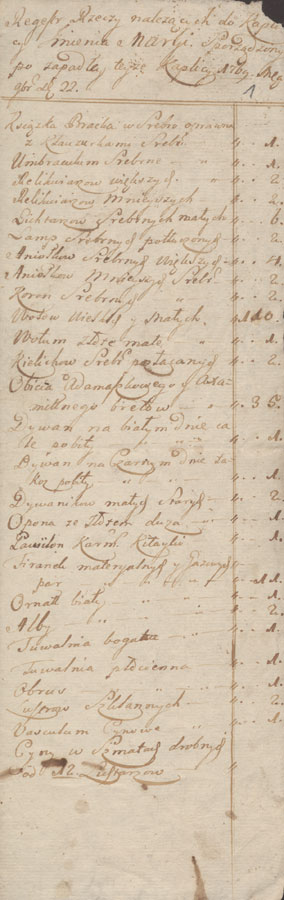 Regestr Rzeczy należących do Kaplicy
Imienia Maryi. Sporządzony
po zapadłey teyże Kaplicy 1769. Año
9bris de 22.
1
Książka Bracka w Srebro oprawna
z Klauzurkami Srebr. " 1.
Umbraculum Srebrne " " 1.
Relikwiarzow większych " 2.
Relikwiarzow Mnieyszych " 2.
Lichtarzow Srebrnych małych " 6.
Lamp Srebrnych potłuczonych " 2.
Aniołkow Srebrnych Większych " 4.
Aniołkow Mnieyszych Srebr. " 2.
Koron Srebrnych " 2.
Wotow Wielkich y Małych. " 110.
Wotum złote małe " 1.
Kielichow Srebr. pozłacanych " 2.
Obicia Adamaszkowego y Axa-
mitnego bretow " 35.
Dywan na białym dnie ca-
le pobity " 1.
Dywan na Czarnym dnie ta-
koż pobity " 1.
Dywanikow małych Starych " 2.
Opona ze złotem duża " 1.
Pawilon Karm. Kitayki " 1.
Firanek materyalnych y Gazowych
par " 11.
Ornat biały " 1.
Alby " 2.
Tuwalnia bogata " 1.
Tuwalnia płócienna " 1.
Obrus " 1.
Lustro Szklannych " 2.
Vasculum Cynowe " 1.
Cyny w Szmatach drobnych
12. Lichtarzow